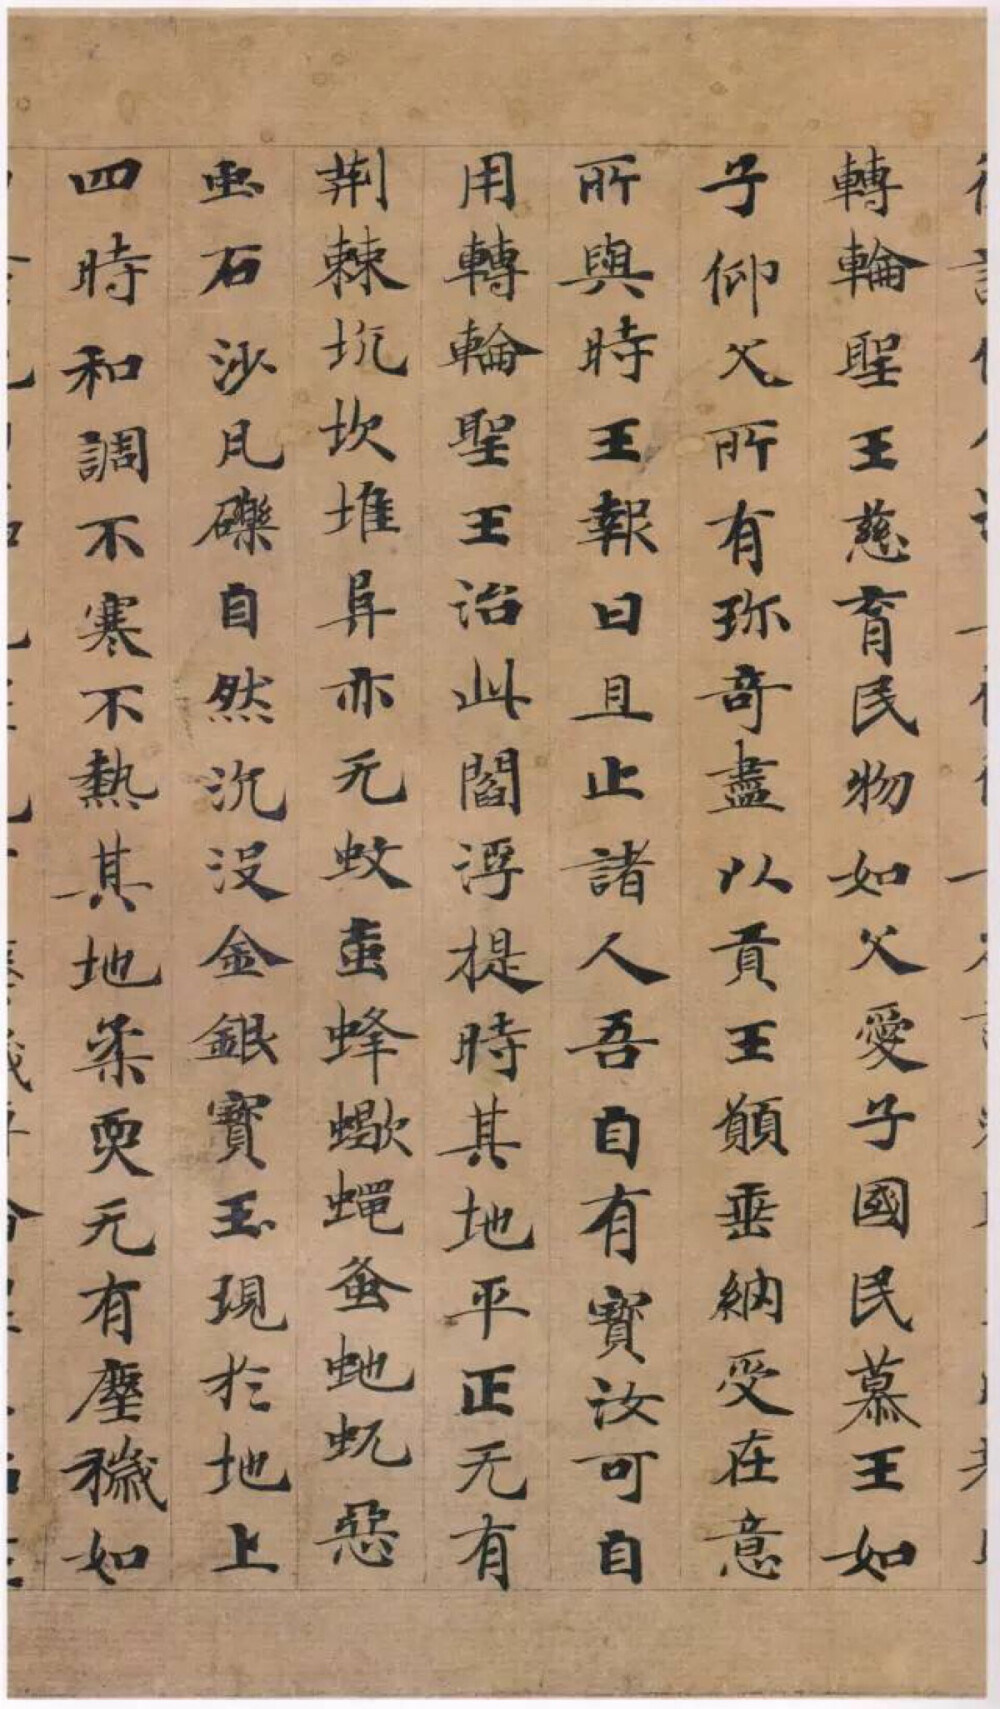 轉輪聖王慈育民物如父愛子國民慕王如
子仰父所有珎奇盡以貢王願垂納受在意
所與時王報曰且止諸人吾自有寳汝可自
用轉輪聖王治此閻浮提時其地平正无有
荆棘坑坎堆阜亦无蚊䖟蜂蠍蠅蚤虵虺惡
虫石沙凡礫自然沉没金銀寳玉現於地上
四時和調不寒不熱其地柔耎无有塵穢如